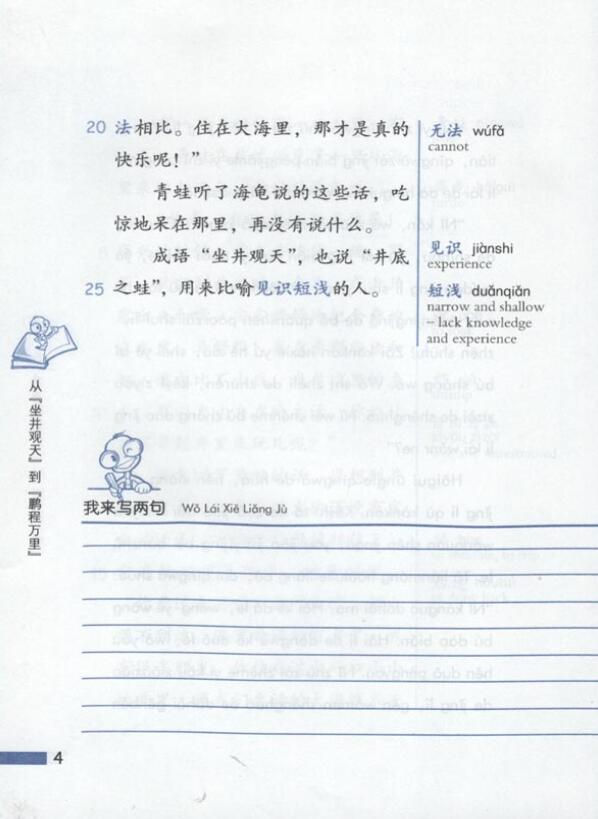 20 法相比。住在大海里，那才是真的
快乐呢！”
青蛙听了海龟说的这些话，吃
惊地呆在那里，再没有说什么。
成语“坐井观天”，也说“井底
25 之蛙”，用来比喻见识短浅的人。
无法 wúfǎ
cannot
见识 jiànshi
experience
短浅 duǎnqiǎn
narrow and shallow
– lack knowledge
and experience
从『坐井观天』到『鹏程万里』
我来写两句 Wǒ Lái Xiě Liǎng Jù
4